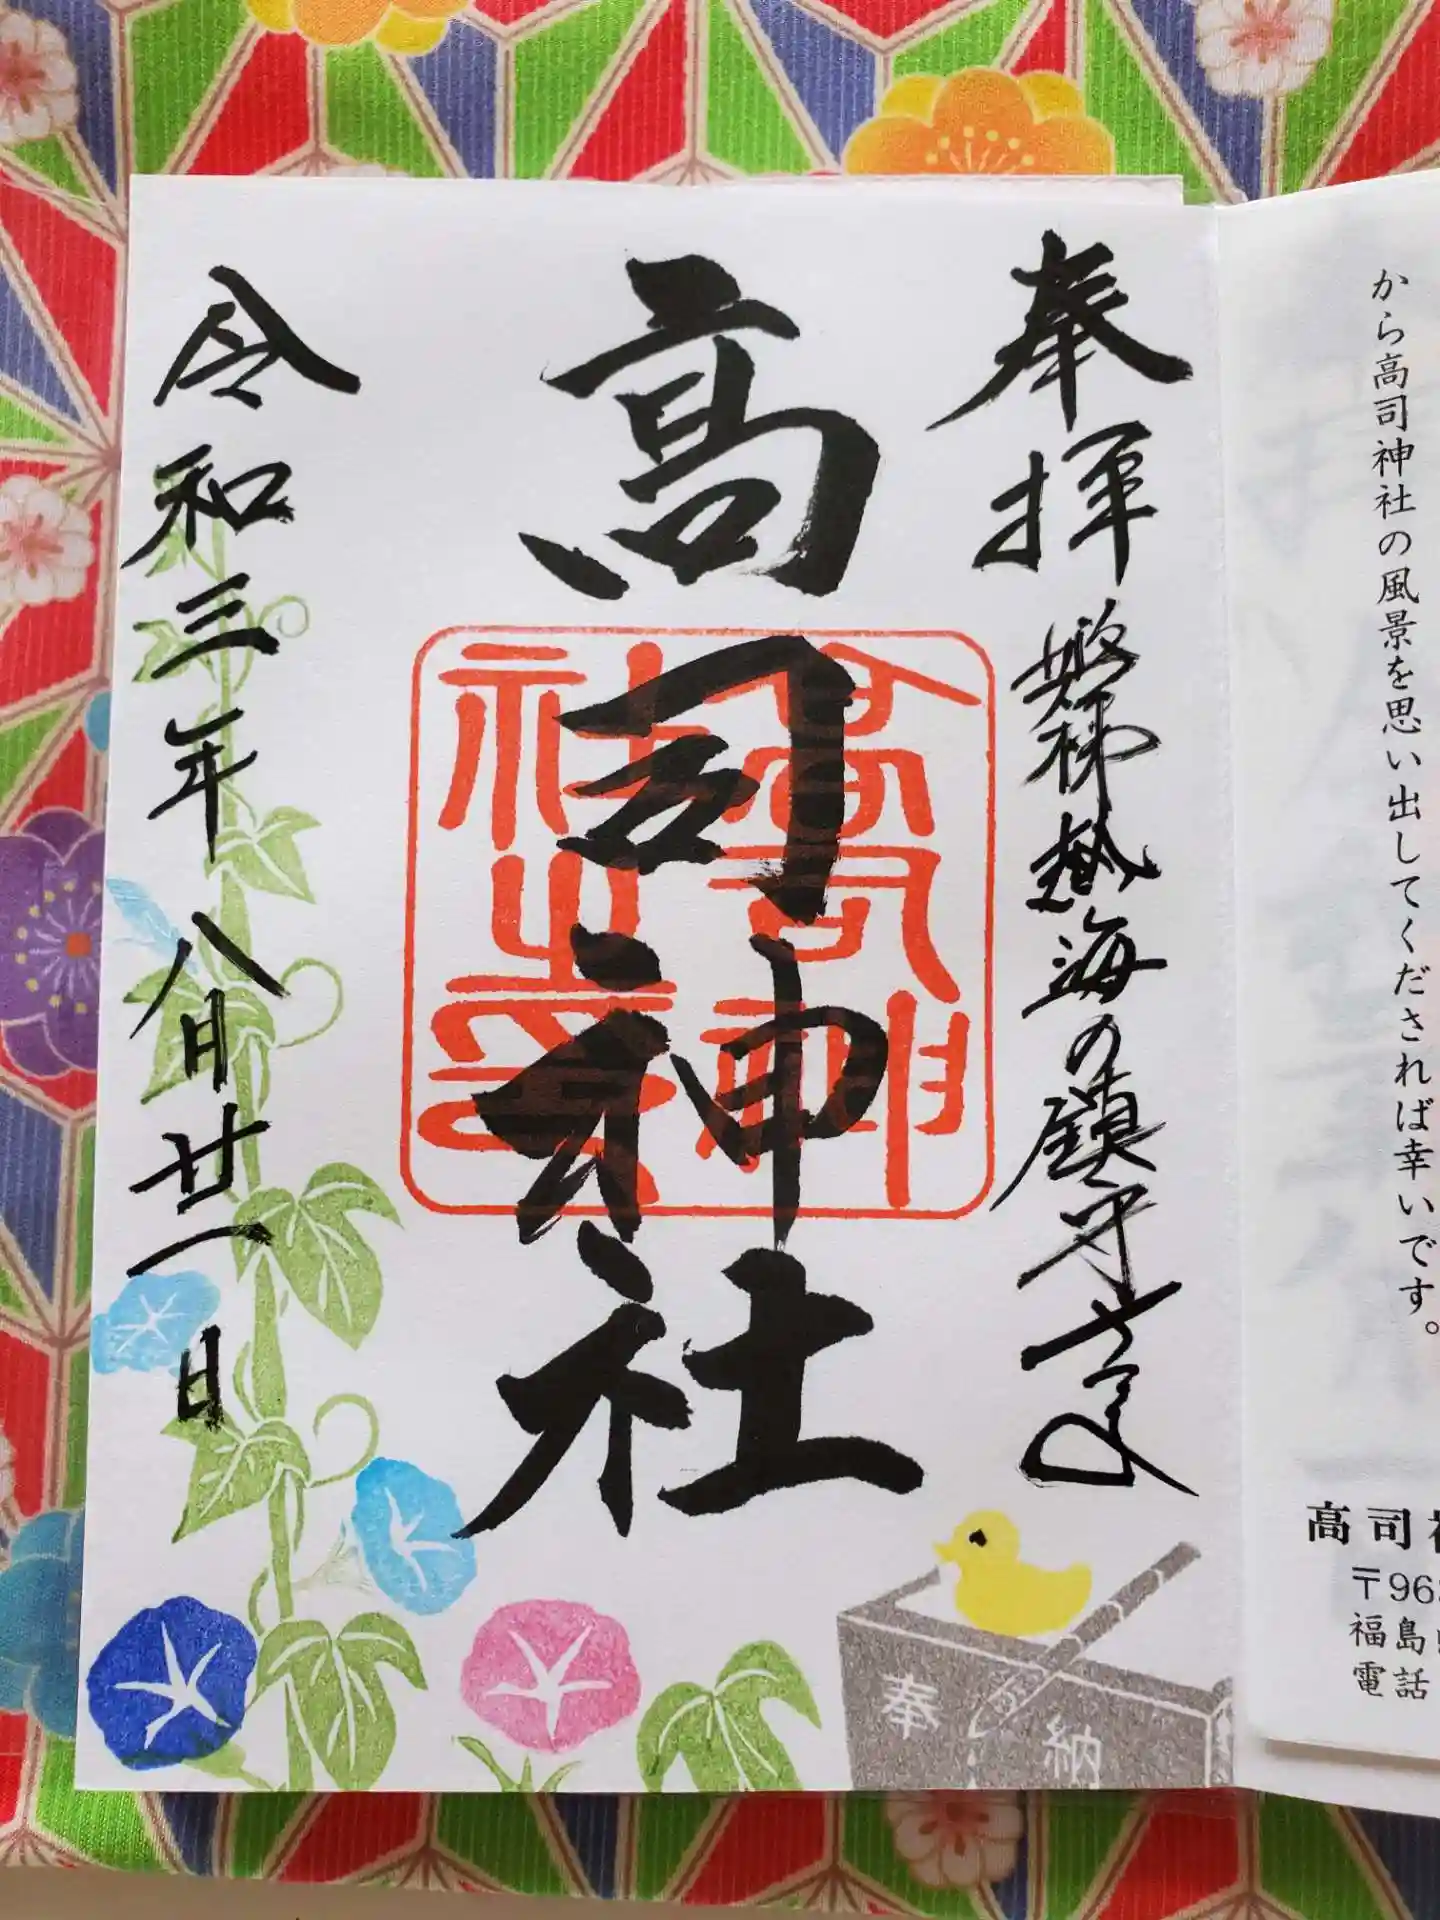 から高司神社の風景を思い出してくだされば幸いです。
高司
〒96
福島
電話
奉拝
磐梯熱海の鎮守さま
高司神社
高司神社之印
令和三年 八月廿一日
奉納